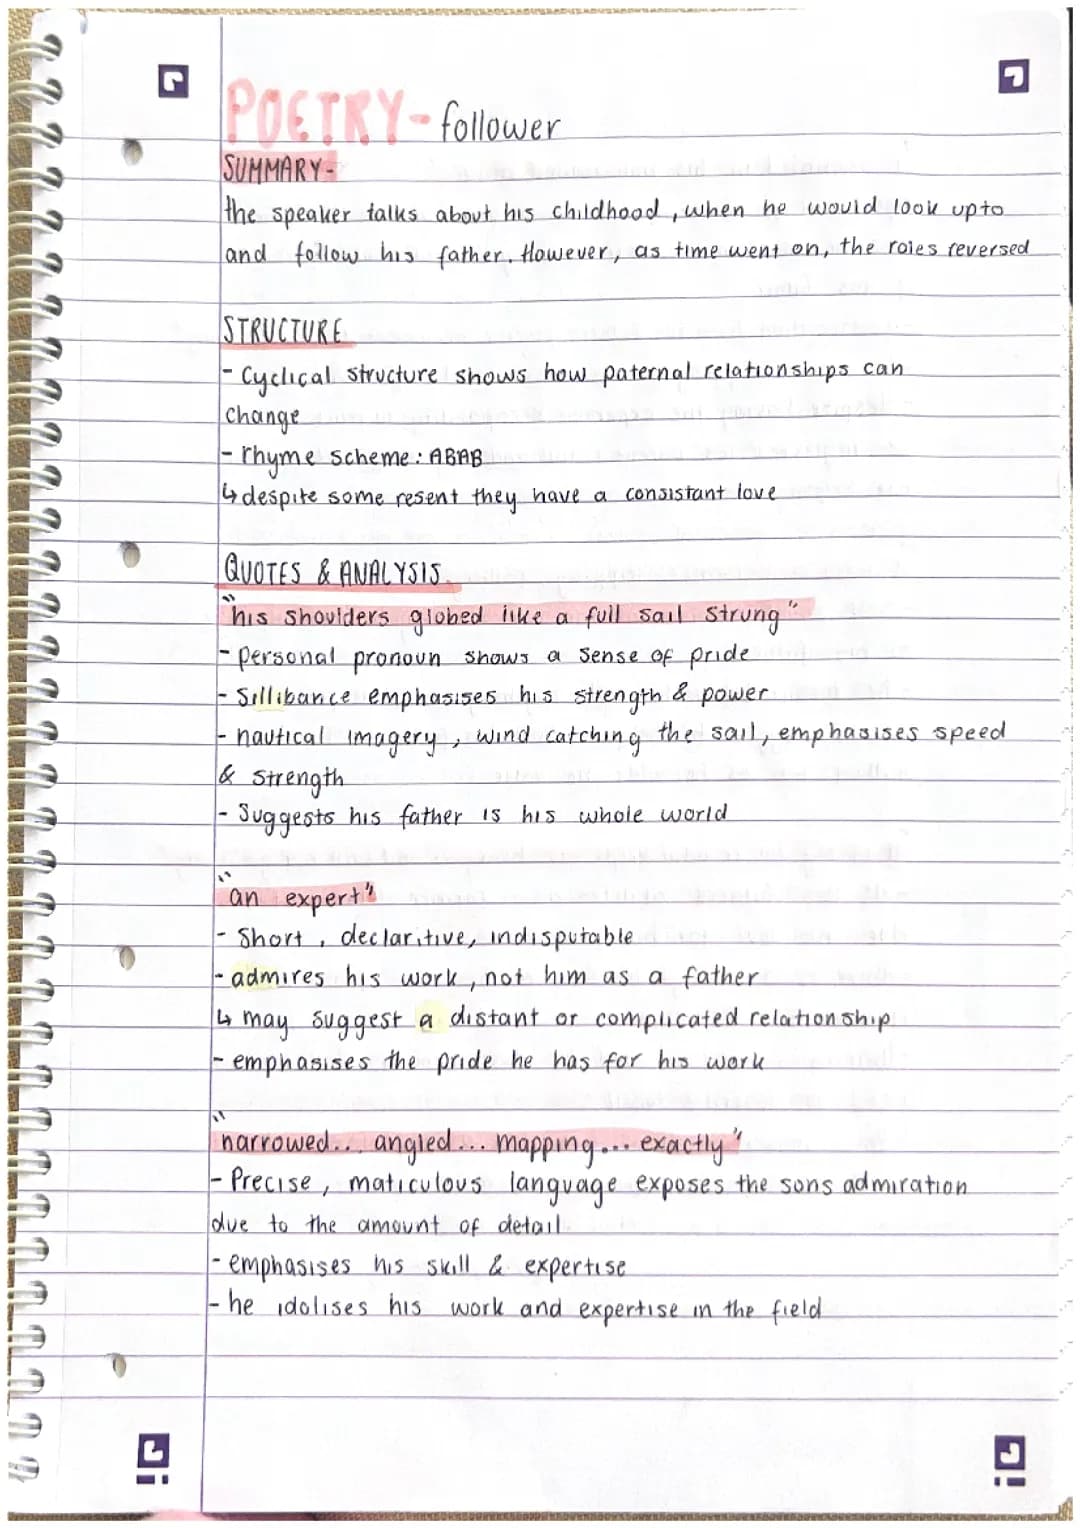 POETRY- follower
SUMMARY-
the speaker talks about his childhood, when he would look up to
and follow his father. However, as time went on, the roles reversed
STRUCTURE
- Cyclical structure shows how paternal relationships can
change
- rhyme scheme: ABAB
↳ despite some resent they have a consistant love
QUOTES & ANALYSIS
"his shoulders globed like a full sail strung"
- personal pronoun shows a sense of pride
- Sillibance emphasises his strength & power
- nautical imagery, wind catching the sail, emphasises speed
& strength
- Suggests his father is his whole world
"an expert"
- Short, declaritive, indisputable
- admires his work, not him as a father
↳ may suggest a distant or complicated relationship
- emphasises the pride he has for his work
"narrowed... angled... mapping... exactly"
- Precise, maticulous language exposes the sons admiration
due to the amount of detail
- emphasises his skill & expertise
- he idolises his work and expertise in the field